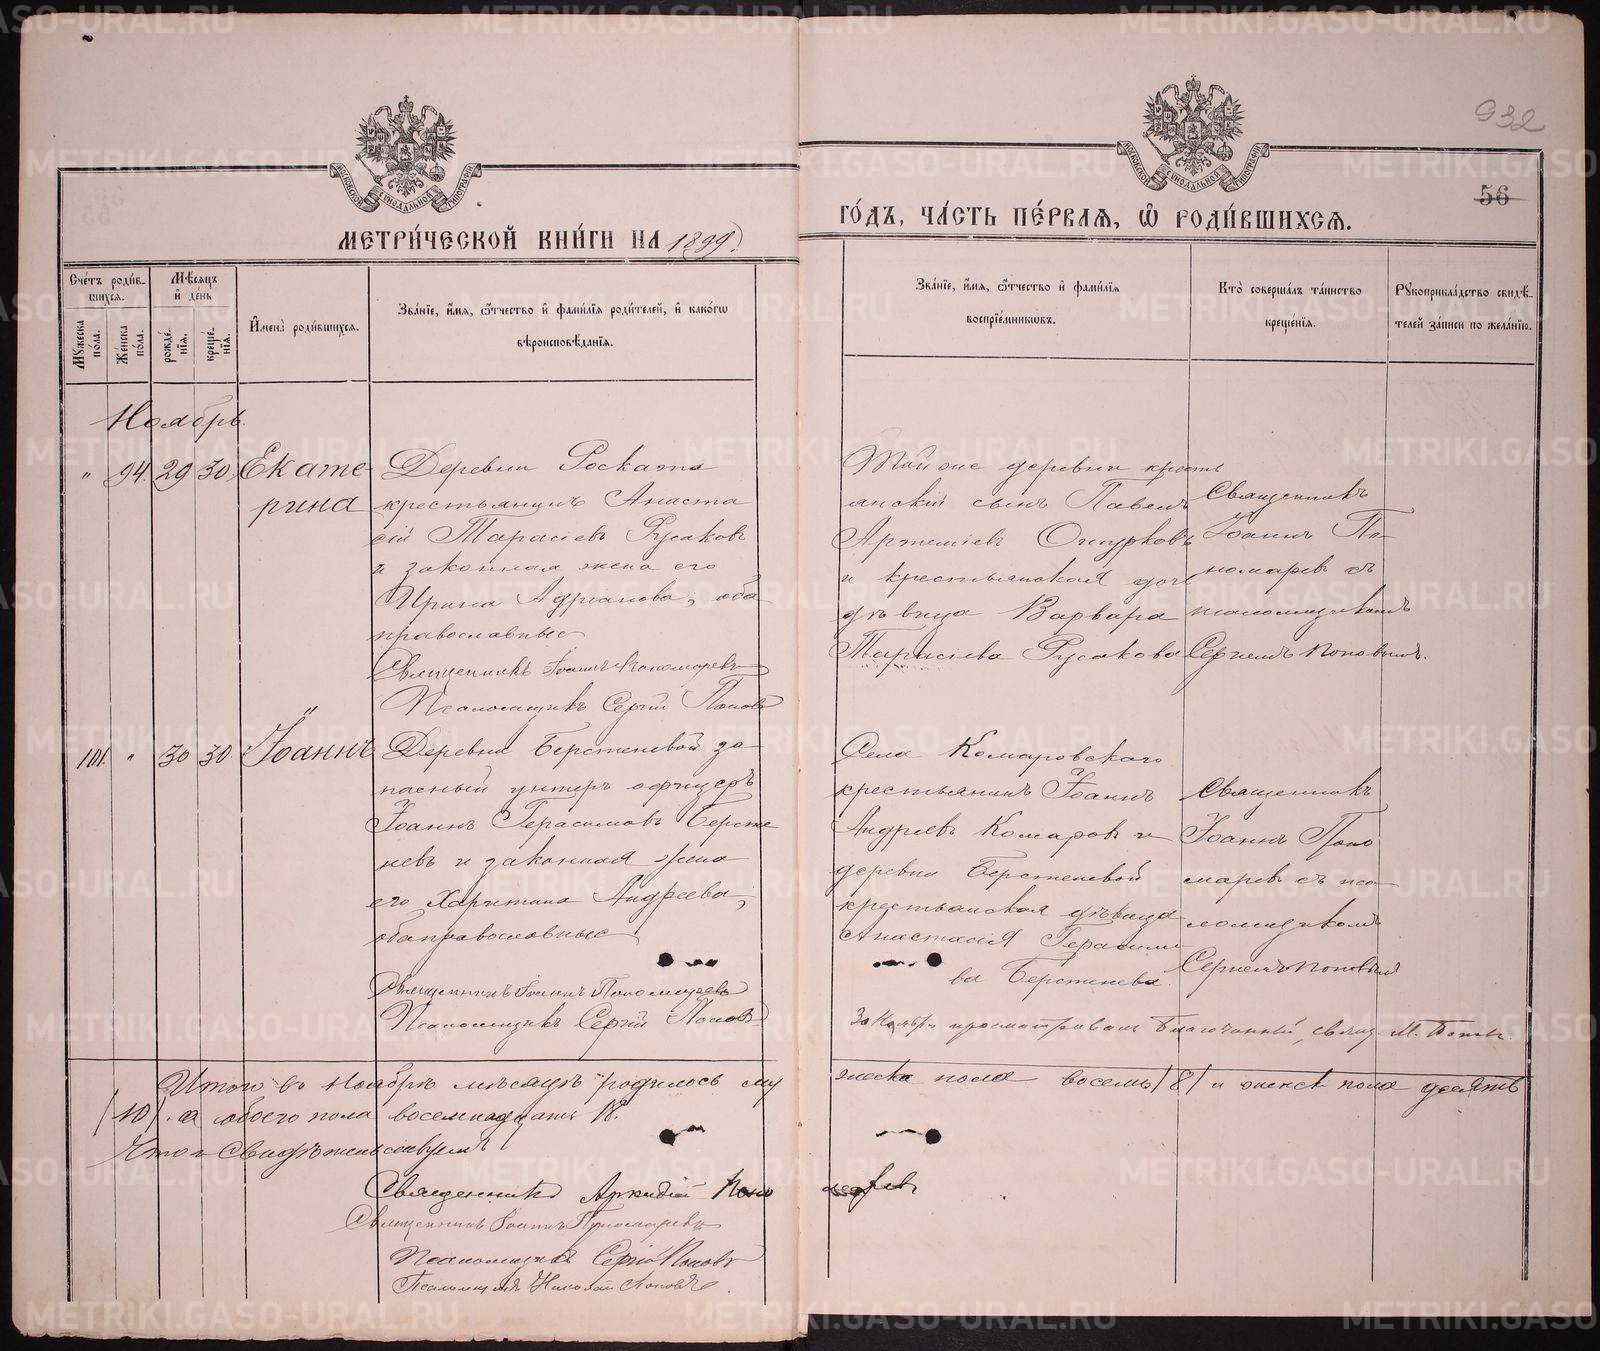 932
56
МОСКОВСКОЙ СѴНОДАЛЬНОЙ ТИПОГРАФІИ
МОСКОВСКОЙ СѴНОДАЛЬНОЙ ТИПОГРАФІИ
МЕТРИ́ЧЕСКОЙ КНИ́ГИ НА 1899
ГО́ДЪ, ЧА́СТЬ ПЕ́РВАЯ, Ѽ РОДИ́ВШИХСЯ.
Сче́тъ роди́вшихся.
Мꙋ́жеска по́ла.
Же́нска по́ла.
Мѣ́сяцъ и҆ де́нь
рожде́нїя.
креще́нїя.
И҆мена̀ роди́вшихся.
Зва́нїе, и҆́мя, ѻ҆́тчество и҆ фами́лїя роди́телей, и҆ како́гѡ
вѣроисповѣ́данїя.
Зва́нїе, и҆́мя, ѻ҆́тчество и҆ фами́лїя
воспрїе́мниковъ.
Кто̀ соверша́лъ та́инство
креще́нїя.
Рꙋкоприкла́дство свидѣ́телей за́писи по жела́нїю.
Ноябрь.
" 94. 29 30. Екате-
рина
Деревни Роската
крестьянинъ Анаста
сій Тарасіевъ Русаковъ
и законная жена его
Ирина Адріанова, оба
православные
Священникъ Іоаннъ Пономаревъ
Псаломщикъ Сергій Поповъ
Той же деревни кресть
янскій сынъ Павелъ
Артеміевъ Окурковъ
и крестьянская дочь
дѣвица Варвара
Тарасіева Русакова
Священникъ
Іоаннъ По-
номаревъ съ
псаломщикомъ
Сергіемъ Поповымъ.
101. " 30 30. Іоаннъ
Деревни Берстеневой за-
пасный унтеръ офицеръ
Іоаннъ Герасимовъ Берсте
невъ и законная жена
его Харитина Андреева,
оба православные
Священникъ Іоаннъ Пономаревъ
Псаломщикъ Сергій Поповъ
Села Комаровскаго
крестьянинъ Іоаннъ
Андреевъ Комаровъ и
деревни Берстеневой
крестьянская дѣвица
Анастасія Герасимо
ва Берстенева.
Священникъ
Іоаннъ Поно
маревъ съ пса-
ломщикомъ
Сергіемъ Поповымъ
просматривалъ Благочинный, свящ. М.
Итого въ Ноябрѣ мѣсяцѣ родилось му
жеска пола восемь /8/ и женска пола десять
/10/. а обоего пола восемнадцать 18.
Что и свидѣтельствуемъ
Священникъ Аркадій Поно
маревъ
Священникъ Іоаннъ Пономаревъ
Псаломщикъ Сергій Поповъ
Псаломщикъ Николай Поповъ.
METRIKI.GASO-URAL.RU